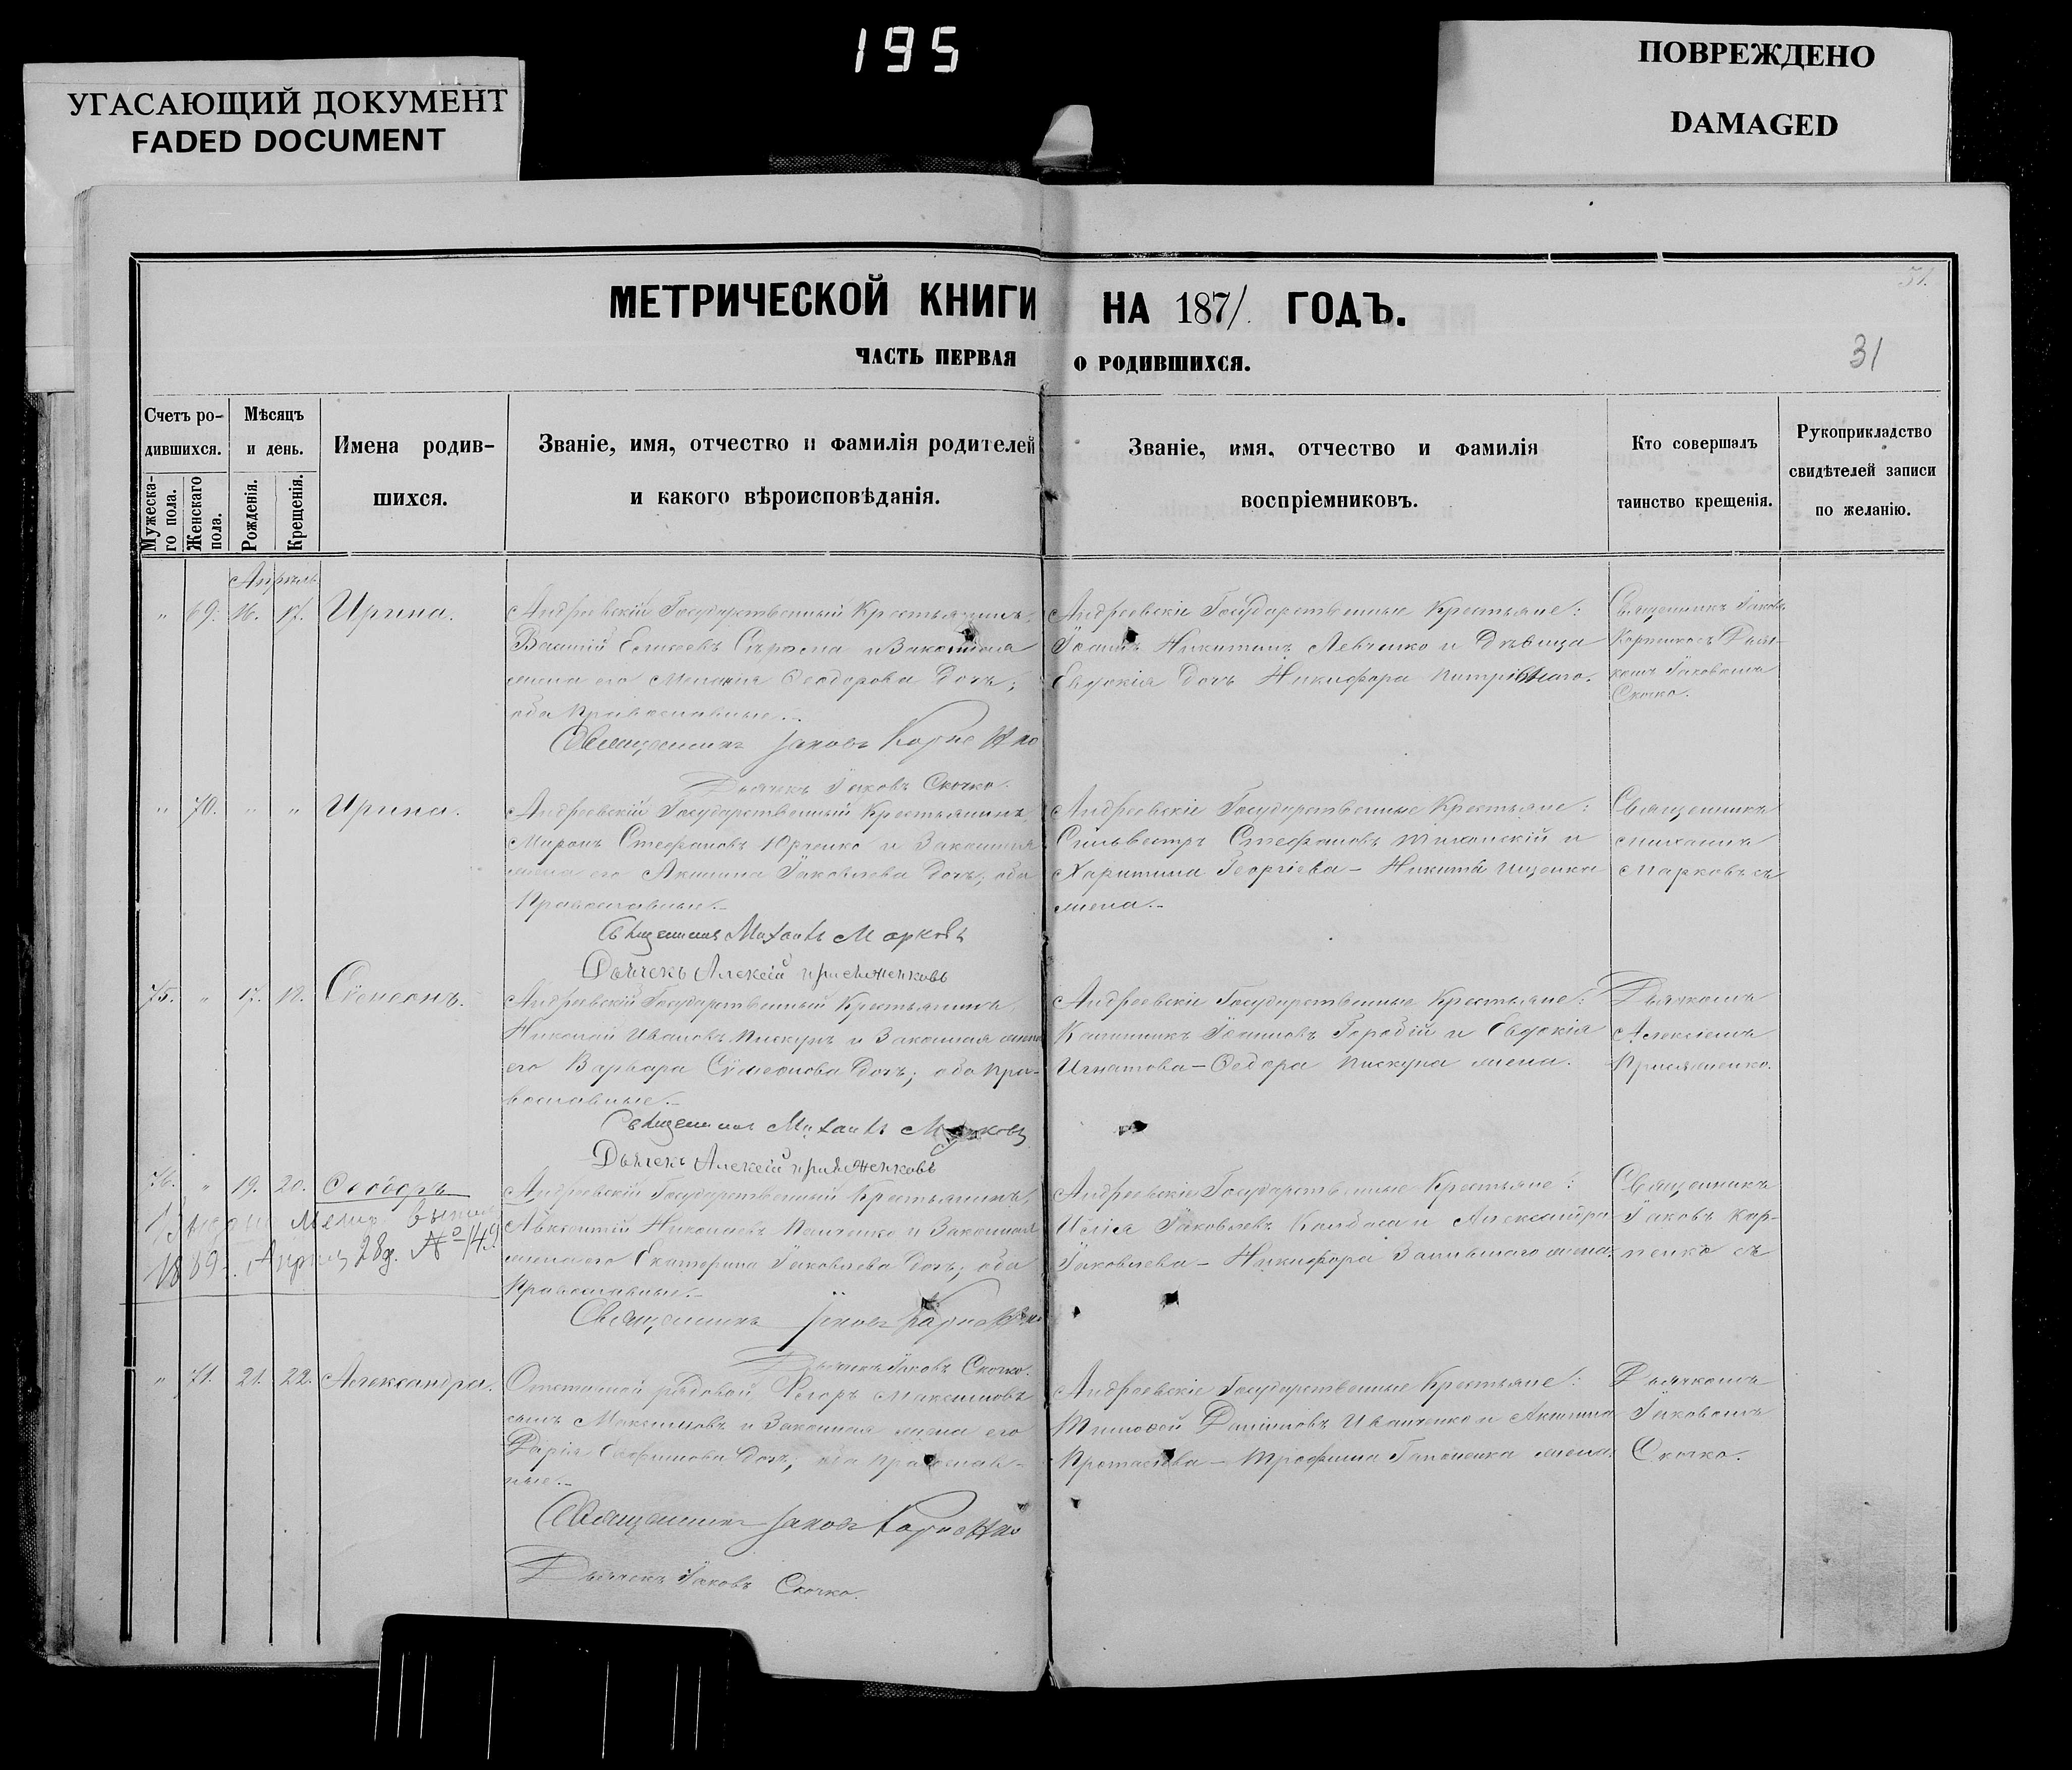 195
УГАСАЮЩИЙ ДОКУМЕНТ
FADED DOCUMENT
ПОВРЕЖДЕНО
DAMAGED
31.
МЕТРИЧЕСКОЙ КНИГИ НА 1871. ГОДЪ.
31
ЧАСТЬ ПЕРВАЯ О РОДИВШИХСЯ.
Счетъ ро-
дившихся.
Мужеска-
го пола.
Женскаго
пола.
Мѣсяцъ
и день.
Рожденія.
Крещенія.
Имена родив-
шихся.
Званіе, имя, отчество и фамилія родителей
и какого вѣроисповѣданія.
Званіе, имя, отчество и фамилія
воспріемниковъ.
Кто совершалъ
таинство крещенія.
Рукоприкладство
свидѣтелей записи
по желанію.
Апрѣль
" 69. 16. 17. Ирина.
Андреевскій Государственный Крестьянинъ,
Василій и Законная
жена его Меланія Ѳеодорова дочь;
оба Православные.
Священникъ Іаковъ Корненко
Дьячекъ Іаковъ Скочко.
Андреевскіе Государственные Крестьяне:
Іоаннъ Никитинъ Левченко и Дѣвица
Евдокія дочь Никифора
Священникъ Іаковъ
Корненко съ Дьяч-
комъ Іаковомъ
Скочко.
" 70. " " Ирина.
Андреевскій Государственный Крестьянинъ,
Миронъ Стефановъ Юрченко и Законная
жена его Акилина Іаковлева дочь; оба
Православные.
Священникъ Михаилъ Марковъ
Дьячекъ Алексѣй
Андреевскіе Государственные Крестьяне:
Сильвестръ Стефановъ и
Харитина Георгіева - Никиты Ищенка
жена.
Священникъ
Михаилъ
Марковъ съ
75. " 17. 18. Сѵмеонъ.
Андреевскій Государственный Крестьянинъ,
Николай Ивановъ Пискунъ и Законная жена
его Варвара Сѵмеонова дочь; оба Пра-
вославные.
Священникъ Михаилъ Марковъ
Дьячекъ Алексѣй
Андреевскіе Государственные Крестьяне:
Каллиникъ Іоанновъ и Евдокія
Игнатова - Ѳедора Пискуна жена.
Дьячкомъ
Алексѣемъ
76. " 19. 20. Ѳеодоръ
1889 г. Апрѣля 28 д. № 149
Андреевскій Государственный Крестьянинъ,
Авксентій Николаевъ Панченко и Законная
жена его Екатерина Іаковлева дочь; оба
Православные.
Священникъ Іаковъ Корненко
Дьячекъ Іаковъ Скочко.
Андреевскіе Государственные Крестьяне:
Илія Іаковлевъ Колбаса и Александра
Іаковлева - Никифора жена.
Священникъ
Іаковъ Кор-
ненко съ
" 71. 21. 22. Александра.
Отставной рядовой Егоръ Максимовъ
сынъ Максимовъ и Законная жена его
Дарія дочь; оба Православ-
ные.
Священникъ Іаковъ Корненко
Дьячекъ Іаковъ Скочко.
Андреевскіе Государственные Крестьяне:
Тимоѳей Даніиловъ Иванченко и Акилина
Протасіева - Трофима Гапоненка жена.
Дьячкомъ
Іаковомъ
Скочко.